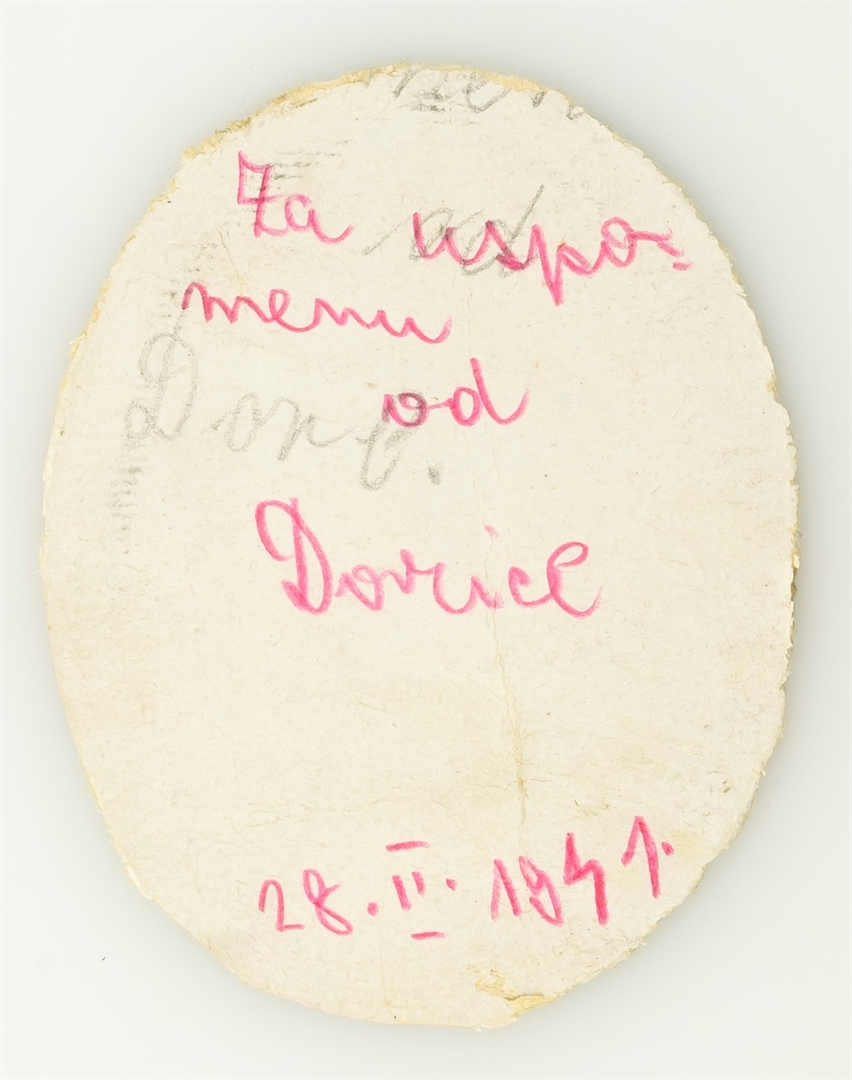 Za uspo-
menu
od
Dorice
28. II. 1941.